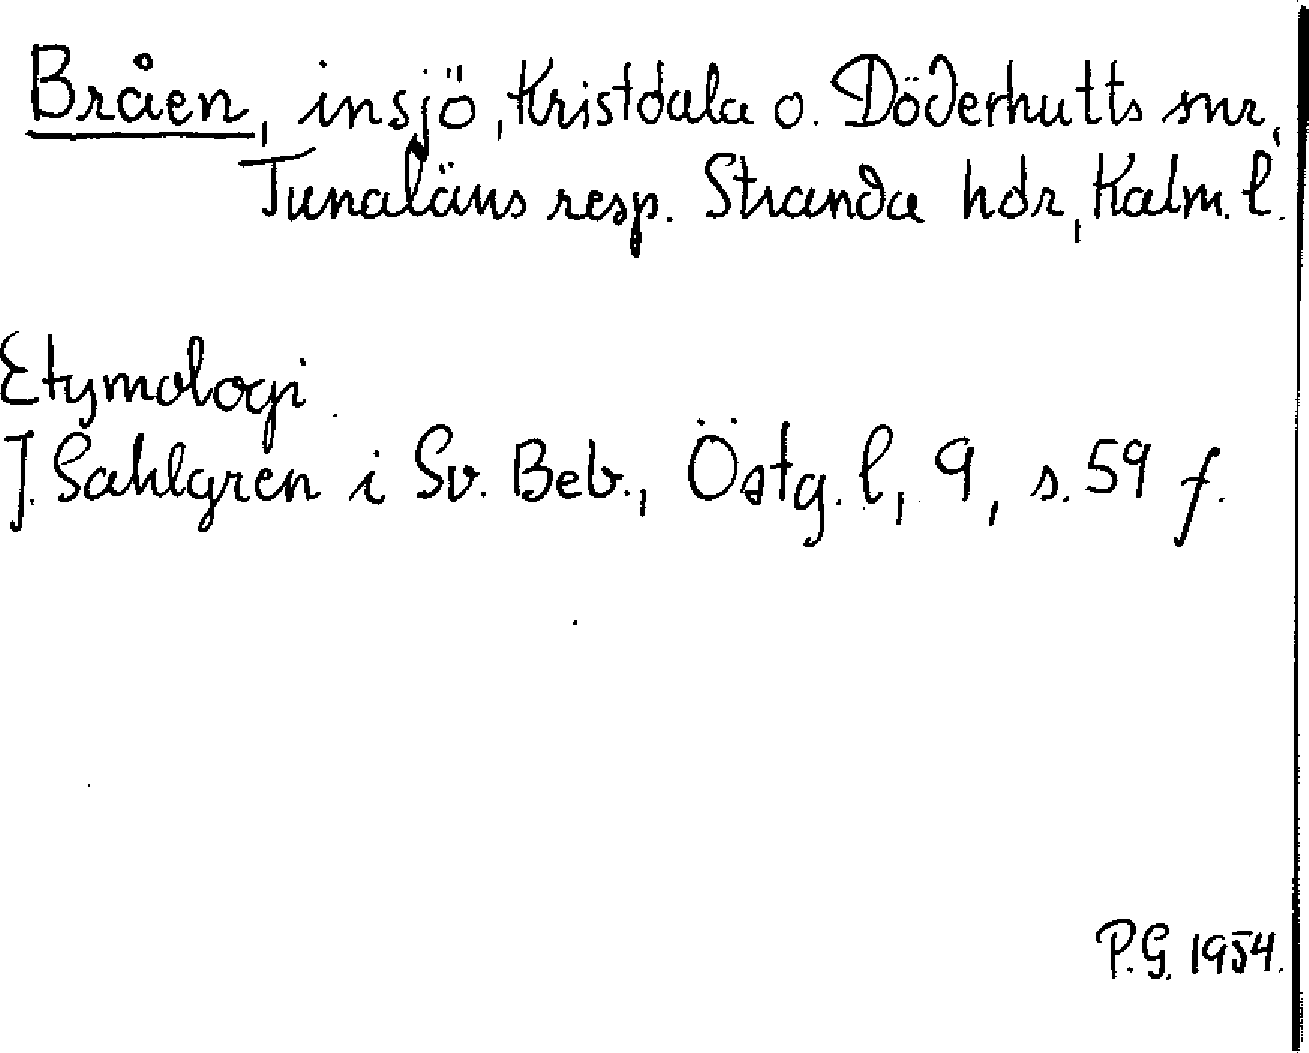 Bråen, insjö, Kristdala o. Döderhults snr,
Tunaläns resp. Stranda hdr, Kalm. l.
Etymologi.
J. Sahlgren i Sv. Beb., Östg. l, 9, s. 59 f.
P.G. 1954.